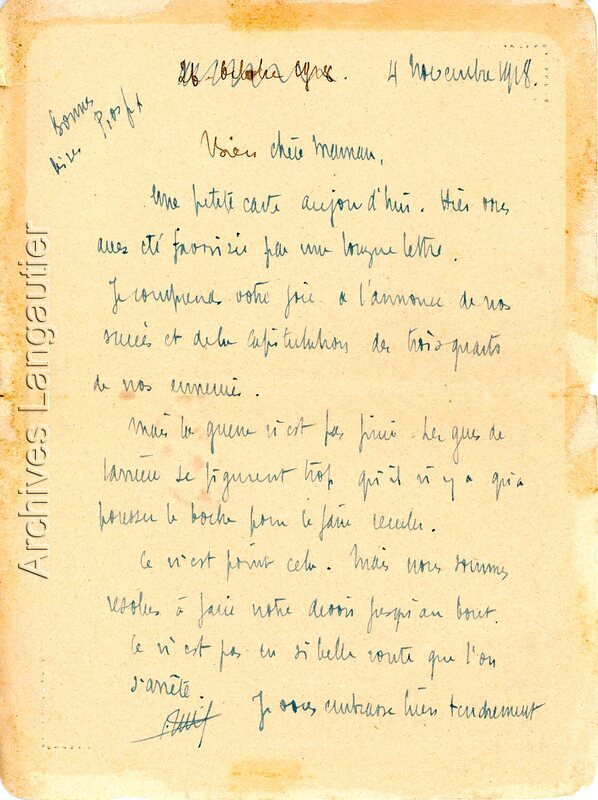 26 Octobre 1918. 4 Novembre 1918.
Bonnes
Bien chère Maman,
Une petite carte aujourd'hui. Hier vous
avez été favorisée par une longue lettre.
Je comprends votre joie à l'annonce de nos
succès et de la capitulation des trois quarts
de nos ennemis.
Mais la guerre n'est pas finie. Les gens de
l'arrière se figurent trop qu'il n'y a qu'à
pousser le boche pour le faire reculer.
Ce n'est point cela. Mais nous sommes
résolus à faire notre devoir jusqu'au bout.
Ce n'est pas en si belle route que l'on
s'arrête.
Je vous embrasse bien tendrement
Archives Langautier